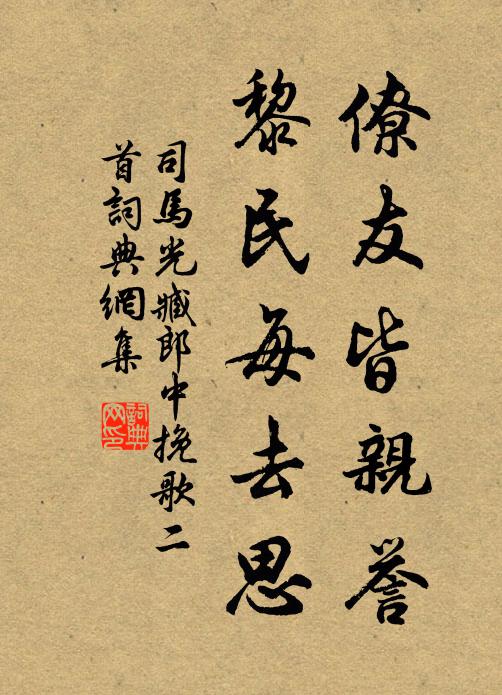 僚友皆親譽
黎民每去思
司馬光臧郎中挽歌二
首詞典網集
詞典
网印